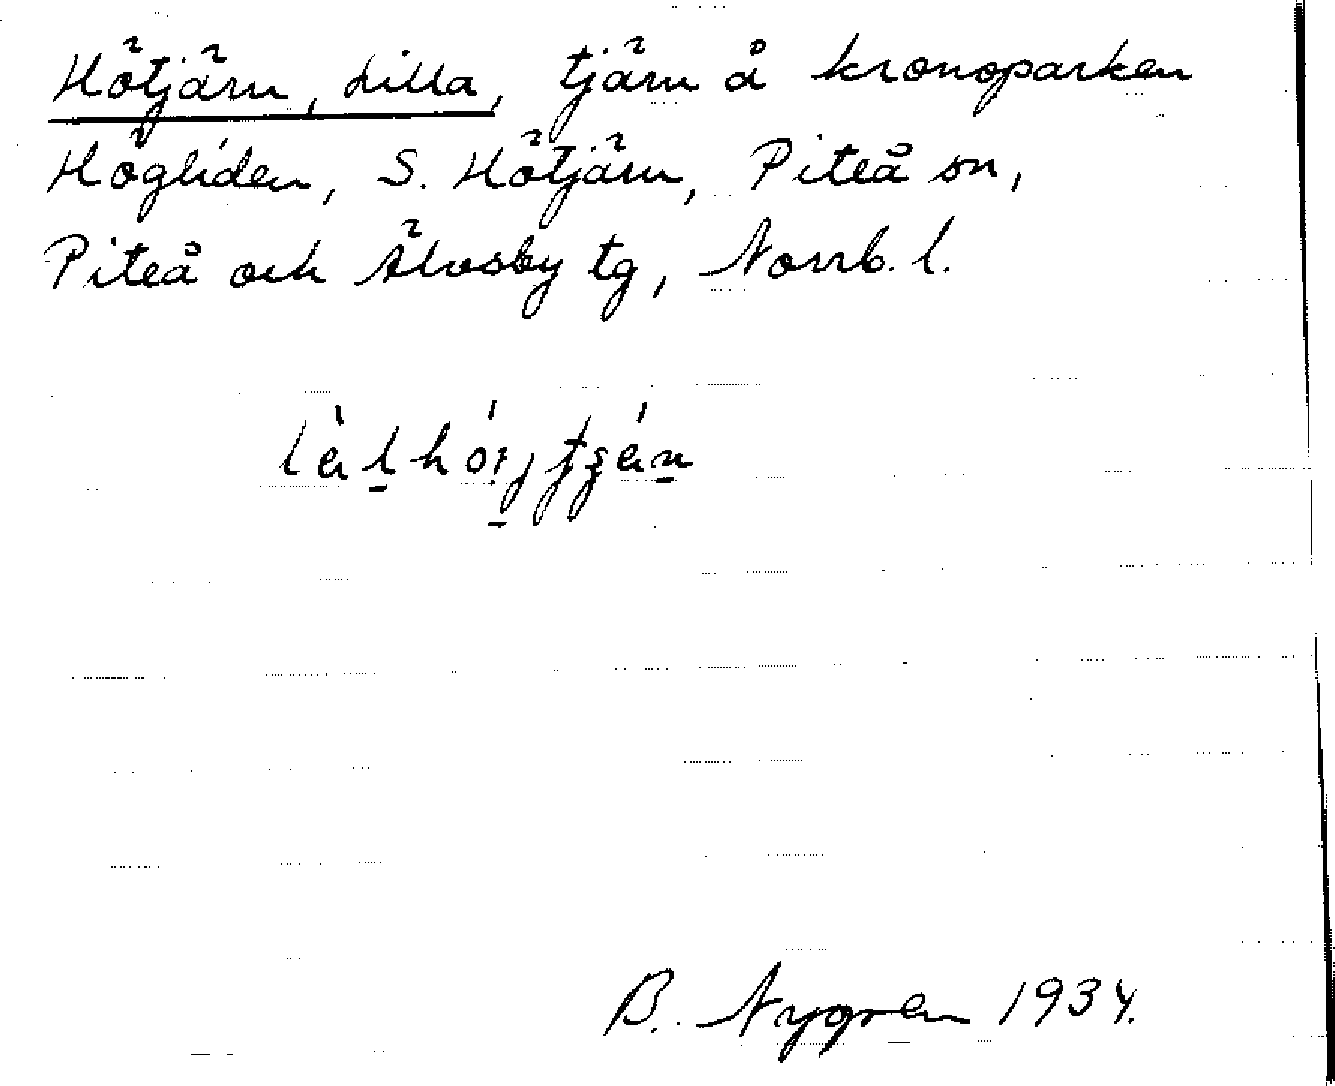 Hötjärn, Lilla, tjärn å kronoparken
Högliden, S. Hötjärn, Piteå sn,
Piteå och Älvsby tg, Norrb. l.
B. Nygren 1934.